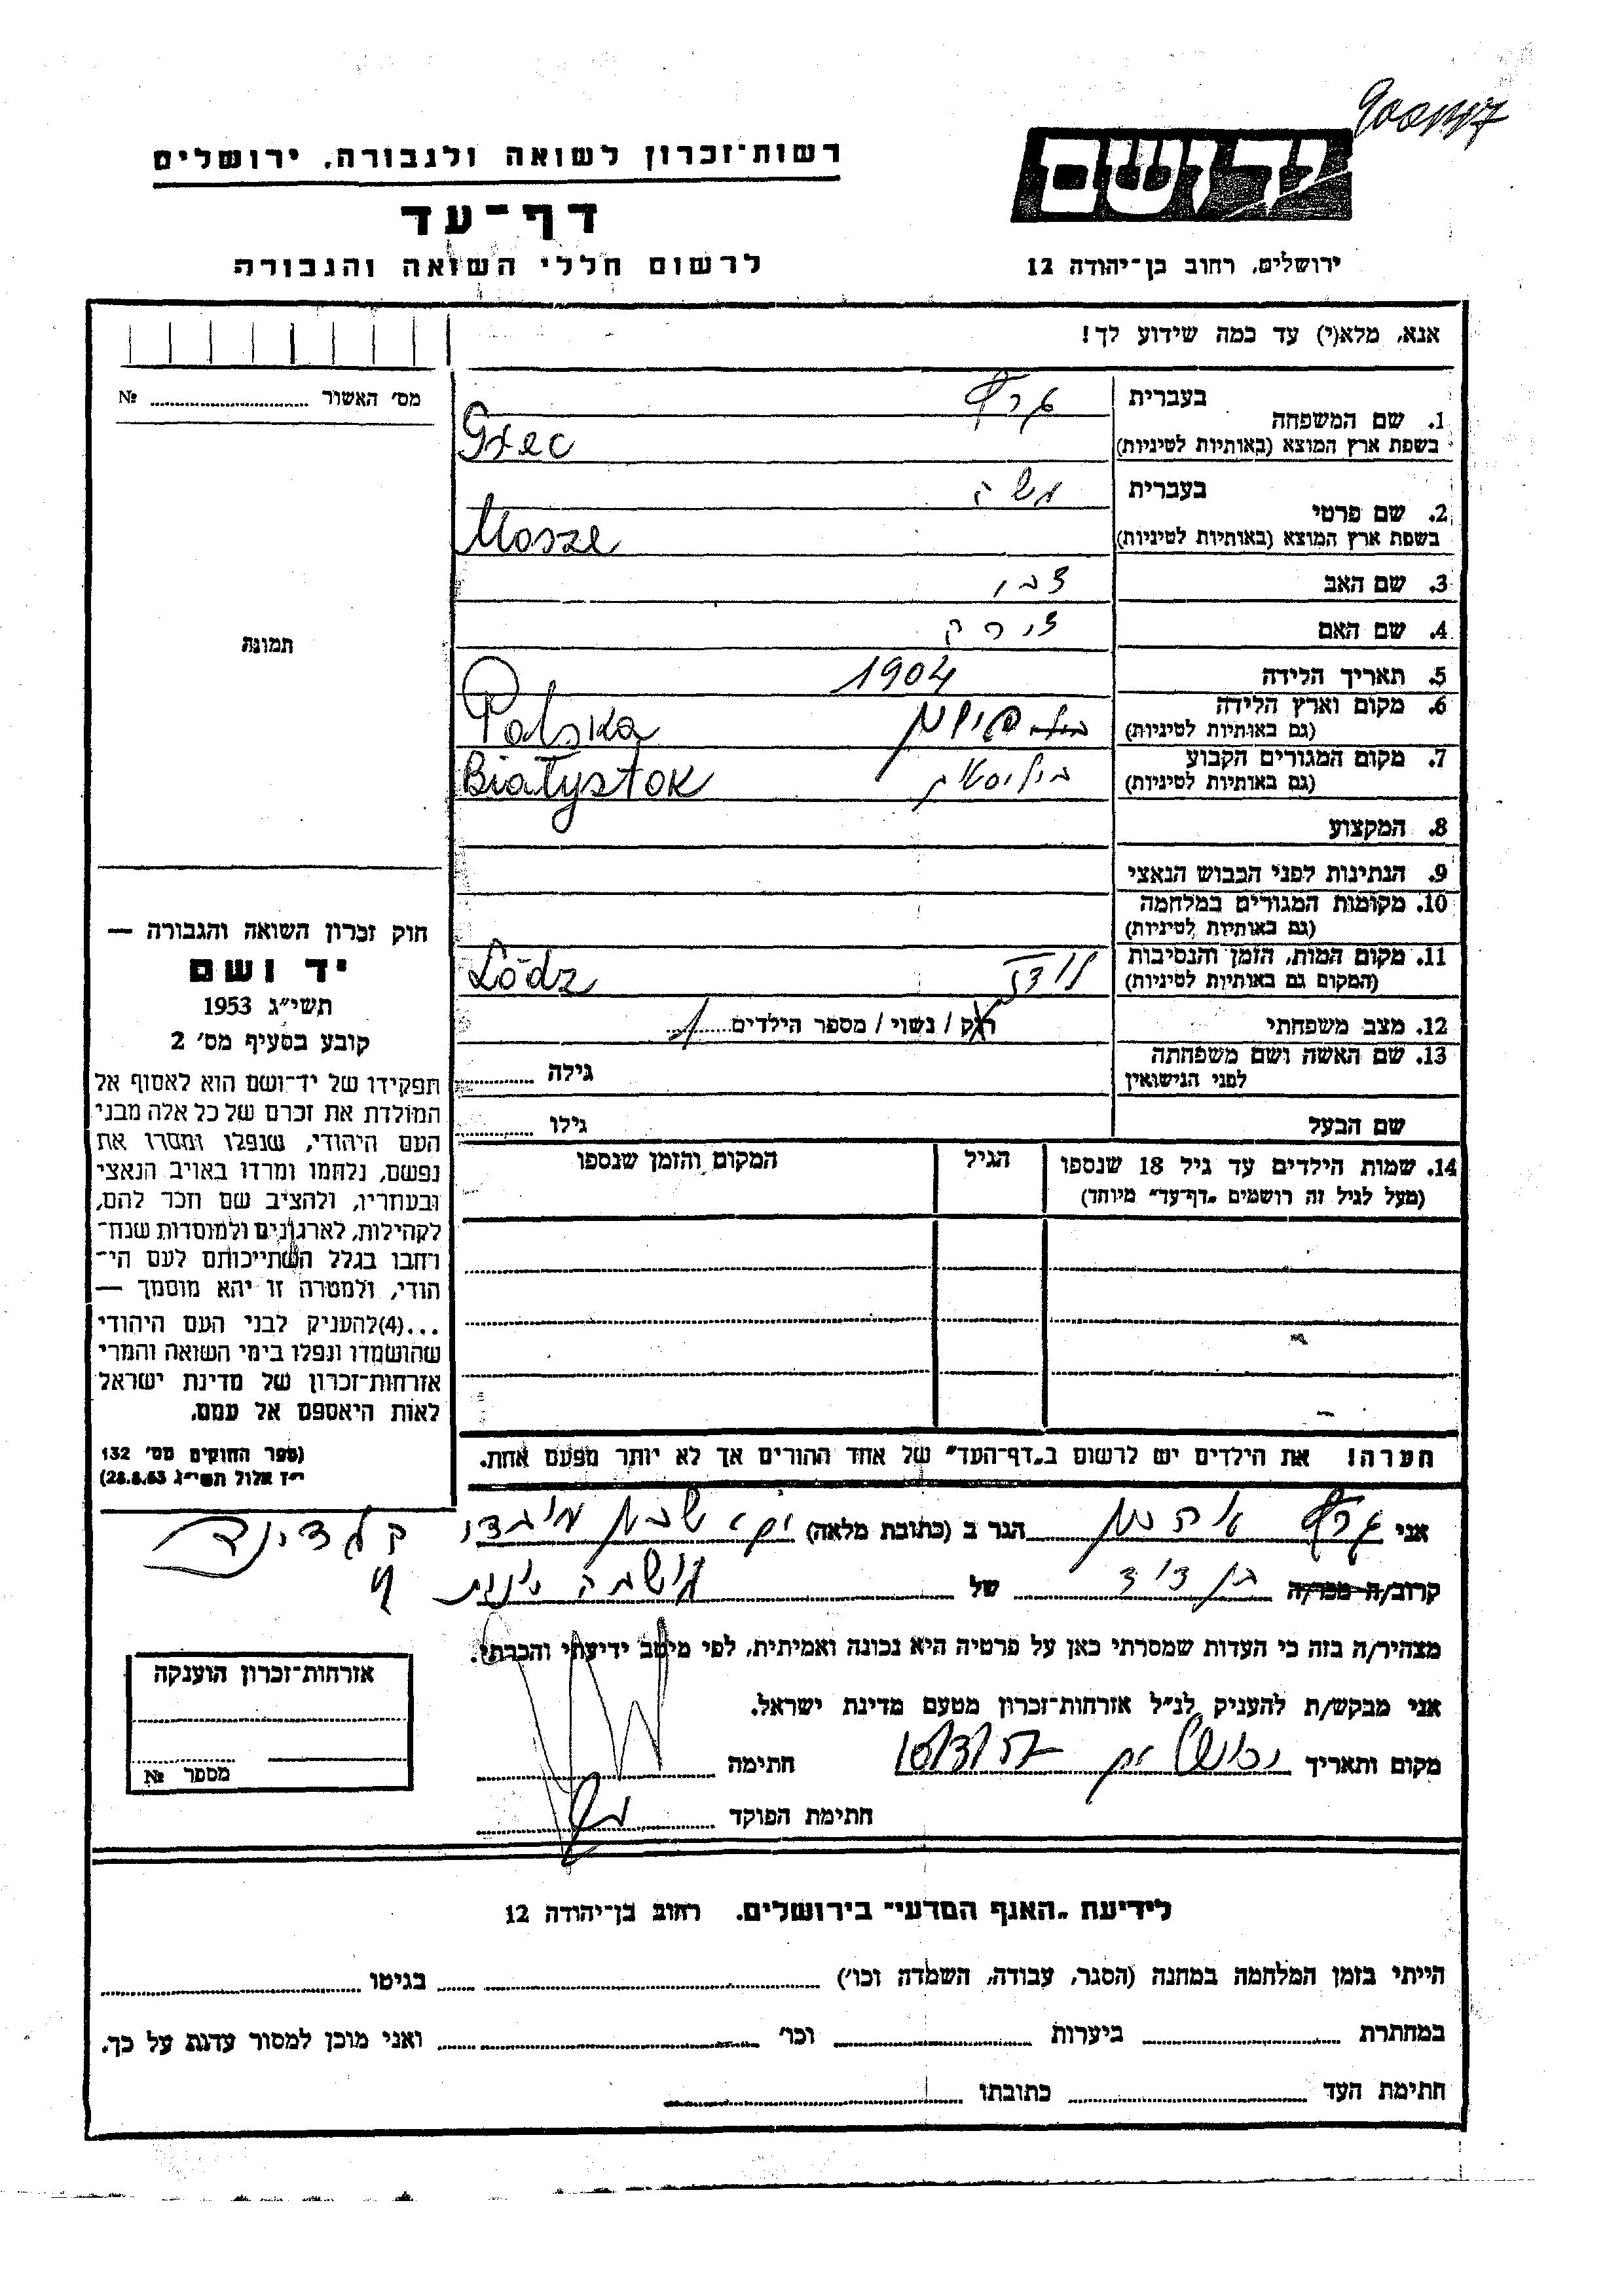 יד ושם
רשות־זכרון לשואה ולגבורה, ירושלים
דף־עד
לרשום חללי השואה והגבורה
ירושלים, רחוב בן־יהודה 12
אנא, מלא(י) עד כמה שידוע לך!
מס׳ האשור ............ №
1. שם המשפחה
בעברית
בשפת ארץ המוצא (באותיות לטיניות) Grec
2. שם פרטי
בעברית משה
בשפת ארץ המוצא (באותיות לטיניות) Mosze
3. שם האב צבי
4. שם האם
5. תאריך הלידה 1904
6. מקום וארץ הלידה
(גם באותיות לטיניות) Polska
7. מקום המגורים הקבוע
(גם באותיות לטיניות) Białystok
8. המקצוע
9. הנתינות לפני הכבוש הנאצי
10. מקומות המגורים במלחמה
(גם באותיות לטיניות)
11. מקום המות, הזמן והנסיבות לודז
(המקום גם באותיות לטיניות) Lódz
12. מצב משפחתי רוק / נשוי / מספר הילדים
13. שם האשה ושם משפחתה
לפני הנישואין
גילה
שם הבעל
גילו
14. שמות הילדים עד גיל 18 שנספו
(מעל לגיל זה רושמים „דף־עד״ מיוחד)
הגיל
המקום והזמן שנספו
הערה! את הילדים יש לרשום ב„דף־העד״ של אחד ההורים אך לא יותר מפעם אחת.
תמונה
חוק זכרון השואה והגבורה —
יד ושם
תשי״ג 1953
קובע בסעיף מס׳ 2
תפקידו של יד־ושם הוא לאסוף אל
המולדת את זכרם של כל אלה מבני
העם היהודי, שנפלו ומסרו את
נפשם, נלחמו ומרדו באויב הנאצי
ובעוזריו, ולהציב שם וזכר להם,
לקהילות, לארגונים ולמוסדות שנח־
רחבו בגלל השתייכותם לעם הי־
הודי, ולמטרה זו יהא מוסמך —
...(4)להעניק לבני העם היהודי
שהושמדו ונפלו בימי השואה והמרי
אזרחות־זכרון של מדינת ישראל
לאות היאספם אל עמם.
(ספר החוקים מס׳ 132
י״ז אלול תשי״ג 28.8.53)
אני הגר ב (כתובת מלאה)
קרוב/ה מכר/ה בן דוד של
מצהיר/ה בזה כי העדות שמסרתי כאן על פרטיה היא נכונה ואמיתית, לפי מיטב ידיעתי והכרתי.
אני מבקש/ת להעניק לנ״ל אזרחות־זכרון מטעם מדינת ישראל.
מקום ותאריך חתימה
חתימת הפוקד
אזרחות־זכרון הוענקה
מספר №
לידיעת „האגף המדעי״ בירושלים. רחוב בן־יהודה 12
הייתי בזמן המלחמה במחנה (הסגר, עבודה, השמדה וכו׳) בגיטו
במחתרת ביערות וכו׳ ואני מוכן למסור עדות על כך.
חתימת העד כתובתו